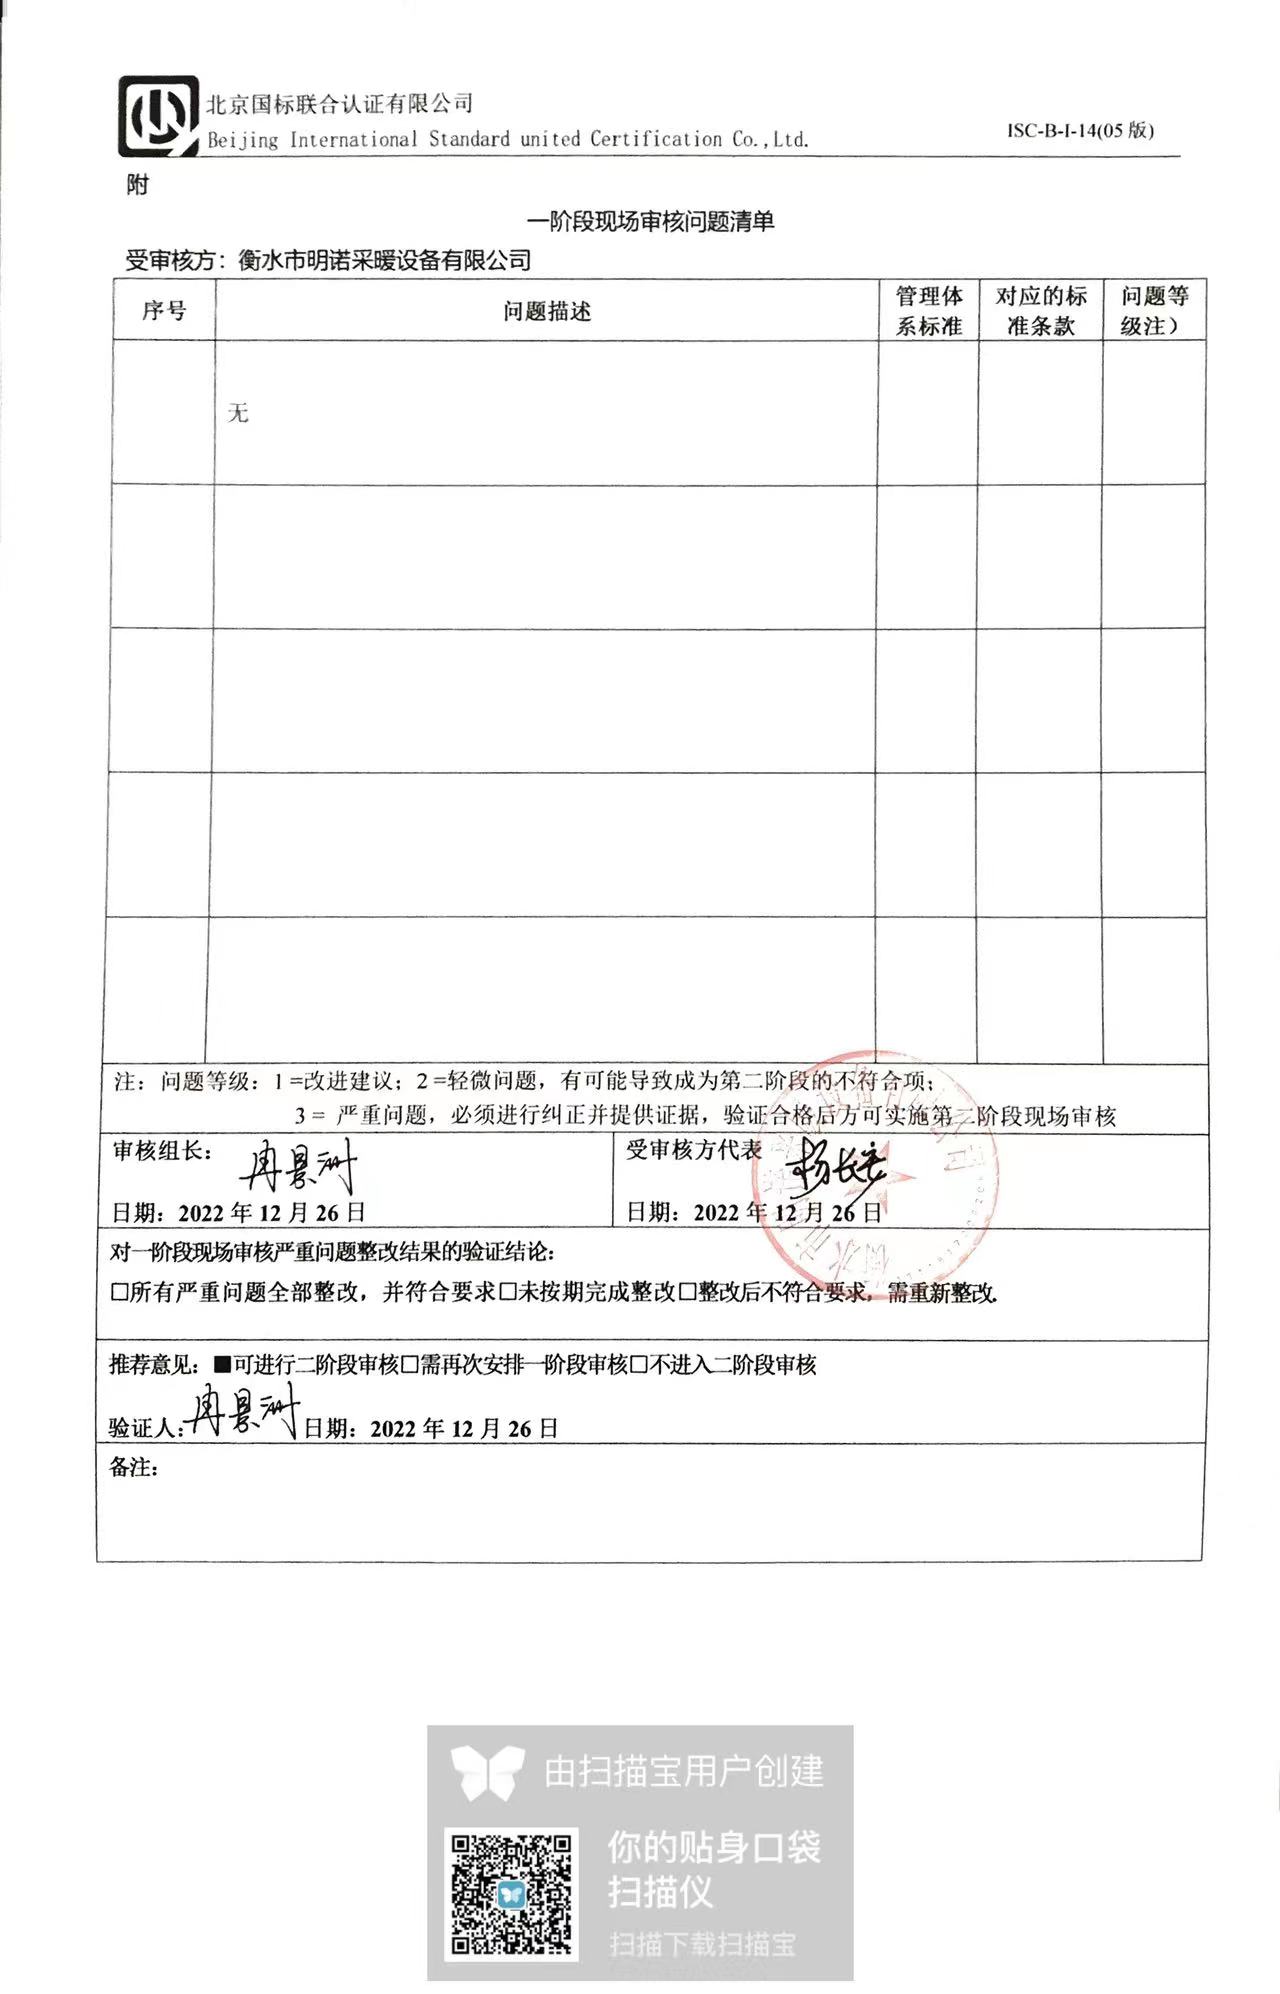 北京国标联合认证有限公司
Beijing International Standard united Certification Co.,Ltd.
ISC-B-I-14(05 版)
附
一阶段现场审核问题清单
受审核方：衡水市明诺采暖设备有限公司
序号 问题描述 管理体系标准 对应的标准条款 问题等级注）
无
注：问题等级：1 =改进建议；2 =轻微问题，有可能导致成为第二阶段的不符合项；
3 = 严重问题，必须进行纠正并提供证据，验证合格后方可实施第二阶段现场审核
审核组长：冉景洲 受审核方代表
日期：2022 年 12 月 26 日 日期：2022 年 12 月 26 日
对一阶段现场审核严重问题整改结果的验证结论：
□所有严重问题全部整改，并符合要求□未按期完成整改□整改后不符合要求，需重新整改.
推荐意见：■可进行二阶段审核□需再次安排一阶段审核□不进入二阶段审核
验证人：冉景洲 日期：2022 年 12 月 26 日
备注：
由扫描宝用户创建
你的贴身口袋
扫描仪
扫描下载扫描宝